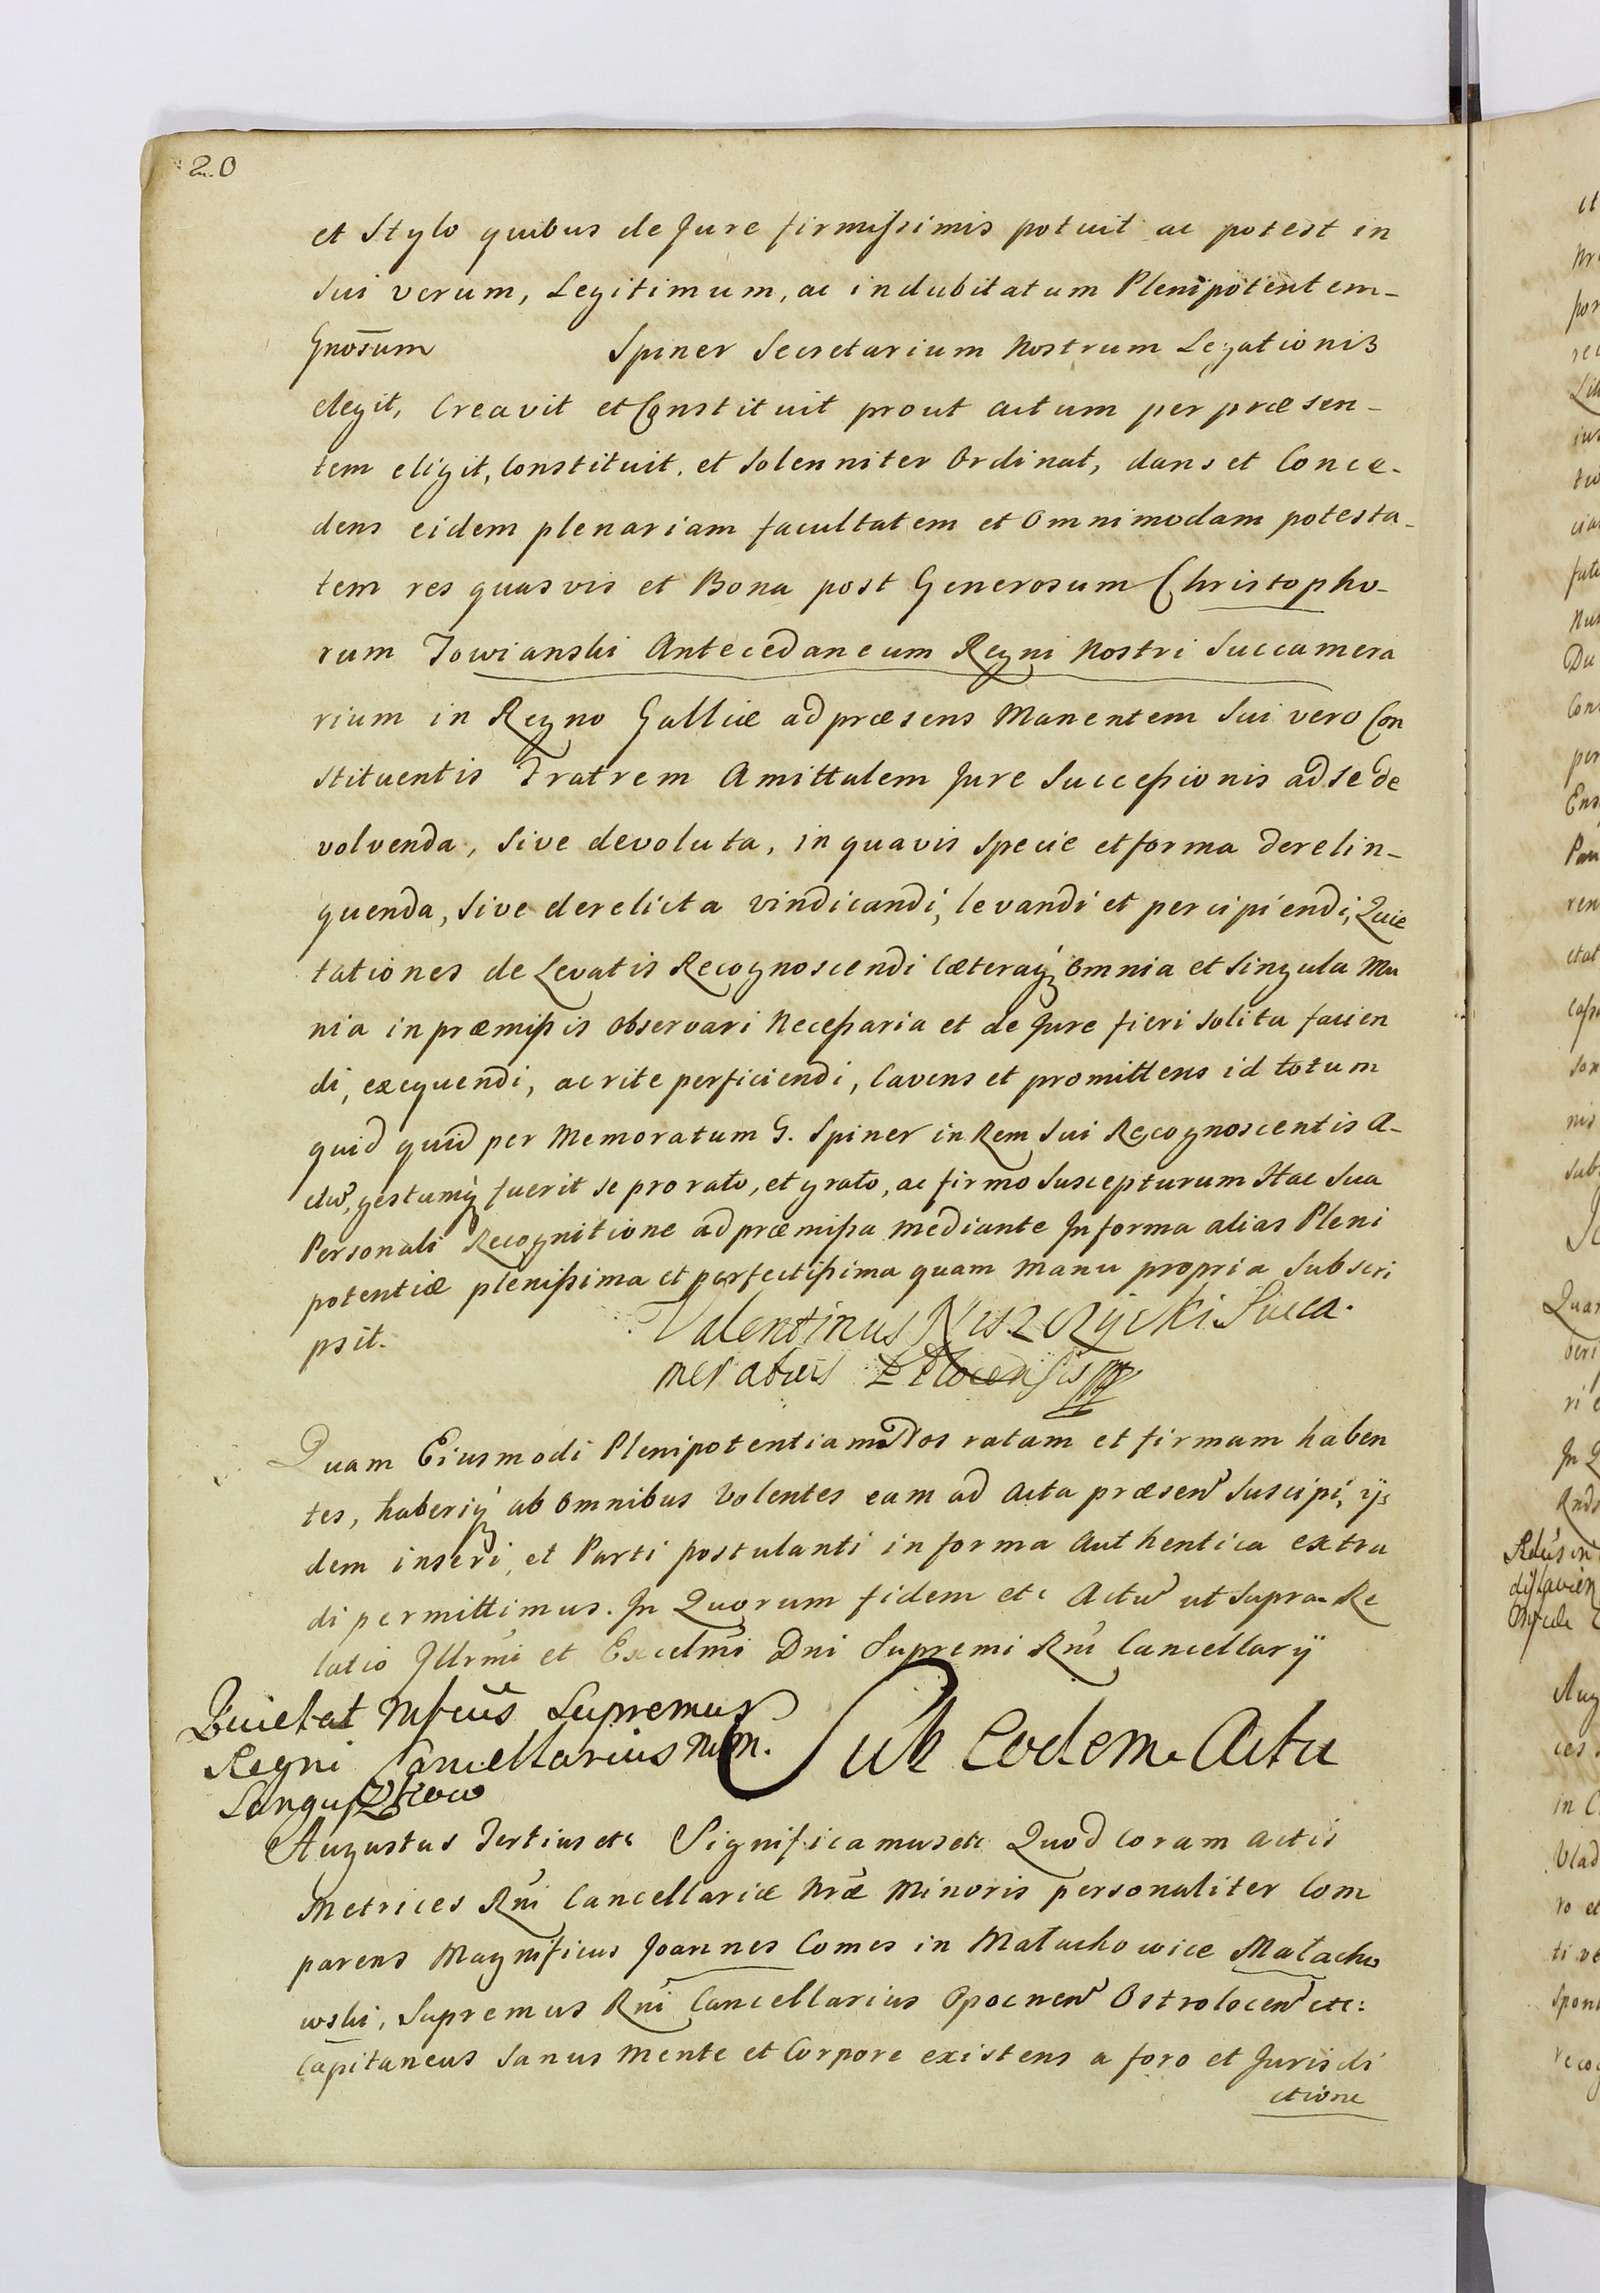 20
et Stylo quibus de Jure firmissimis potuit ac potest in
sui verum, Legitimum, ac indubitatum Plenipotentem-
Gnosum Spiner Secretarium Nostrum Legationis
elegit, Creavit et Constituit prout actum per præsen-
tem eligit, Constituit, et Solenniter Ordinat, dans et Conce-
dens eidem plenariam facultatem et Omnimodam potesta-
tem res quasvis et Bona post Generosum Christopho-
rum Towianski Antecedaneum Regni Nostri Succamera
rium in Regno Galliæ ad præsens Manentem Sui vero Con
stituentis Fratrem Amittalem Jure Successionis ad se de
volvenda, sive devoluta, in quavis Specie et forma derelin-
quenda, sive derelicta vindicandi, levandi et percipiendi, Quie
tationes de Levatis Recognoscendi Cæteraq₃ omnia et singula Mu
nia in præmissis observari Necessaria et de Jure fieri solita facien
di, exequendi, ac rite perficiendi, Cavens et promittens id totum
quid quid per Memoratum G. Spiner in Rem Sui Recognoscentis A-
ctu, gestumq₃ fuerit se pro rato, et grato, ac firmo Suscepturum Hac Sua
Personali Recognitione ad præmissa mediante In forma alias Pleni
potentiæ plenissima et perfectissima quam Manu propria Subscri
psit. Valentinus Succa.
merarius
Quam Eiusmodi Plenipotentiam Nos ratam et firmam haben
tes, haberiq₃ ab omnibus Volentes eam ad Acta præsen Suscipi, ijs
dem inseri, et Parti postulanti in forma Authentica extra
di permittimus. In Quorum fidem etc Actu ut Supra. Re
latio Illrmi et Excelmi Dni Supremi Rni Cancellarij
Quietat Mfcus Supremus
Regni Cancellarius
Sub Eodem Actu
Augustus Tertius etc Significamus etc Quod Coram Actis
Metrices Rni Cancellariæ Nræ Minoris personaliter Com
parens Magnificus Joannes Comes in Małachowice Małacho
wski, Supremus Rni Cancellarius Opocnen Ostrolocen etc:
Capitaneus Sanus Mente et Corpore existens a foro et Jurisdi
ctione